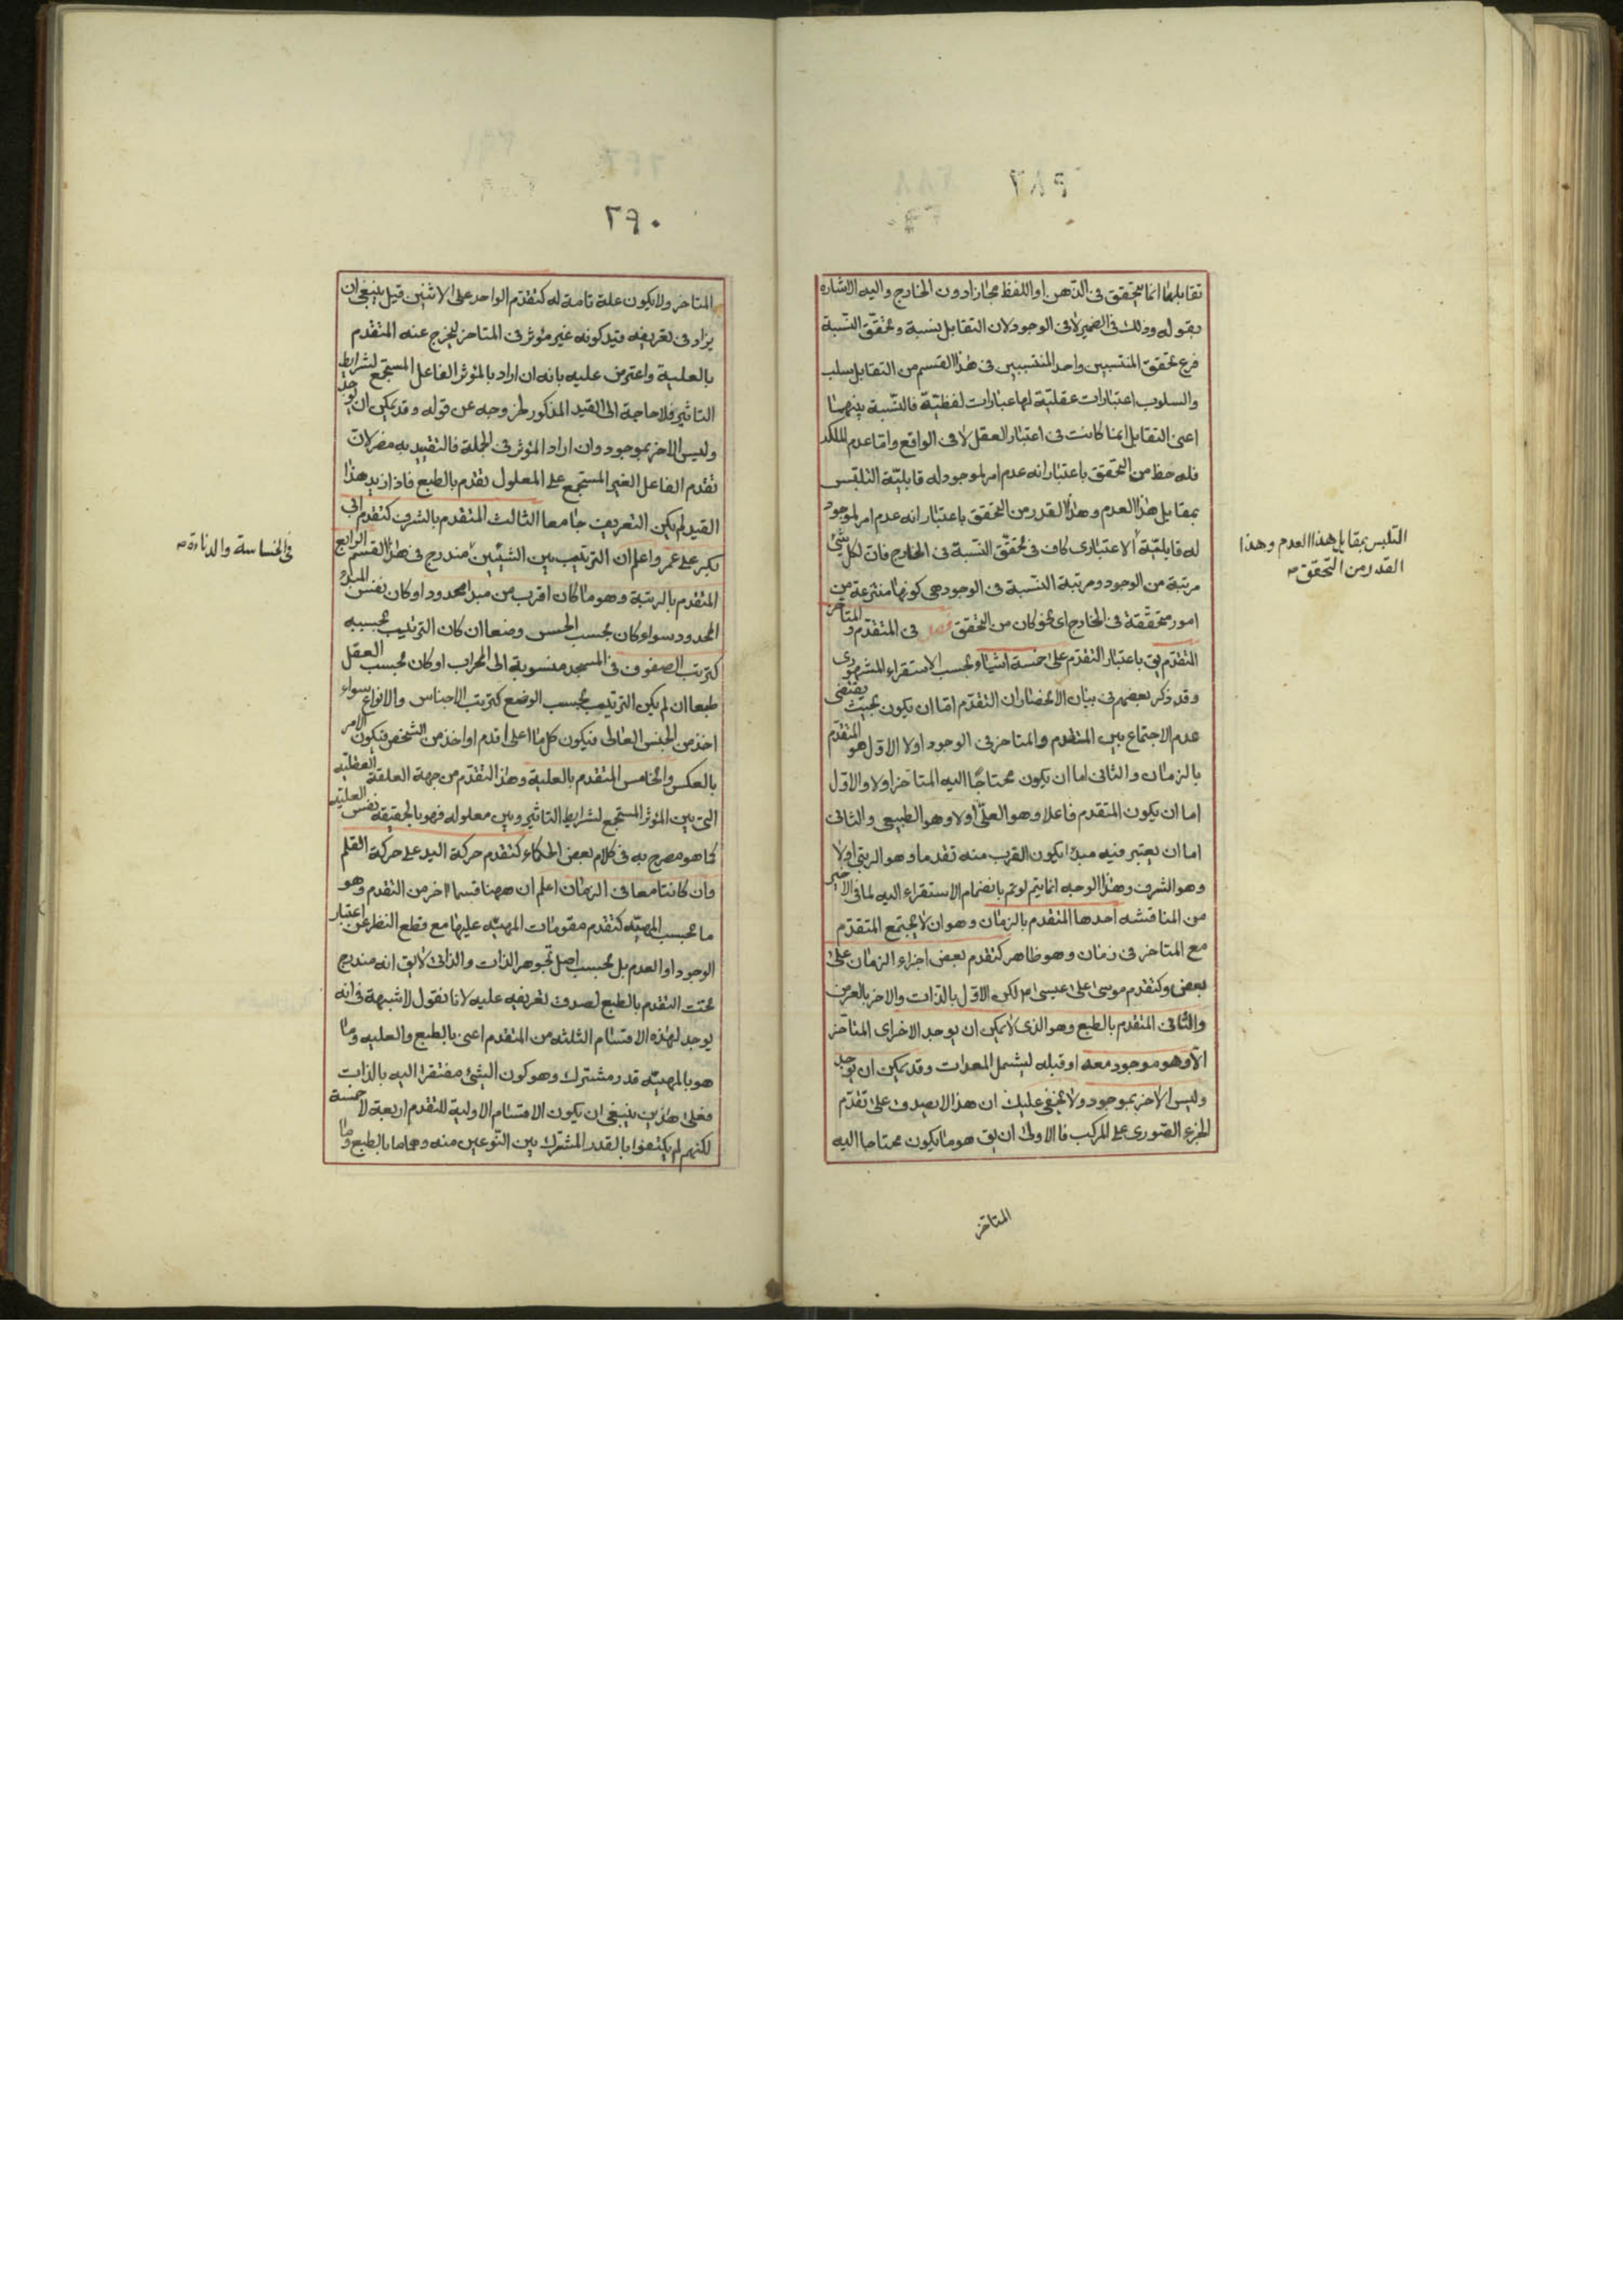 تقابلها انما يتحقق فى الذهن او اللفظ مجازا دون الخارج واليه الاشاره
بقوله وذلك فى الضمير لا فى الوجود لان التقابل نسبة وتحقق النسبة
فرع تحقق المنتسبين واحد المنتسبين فى هذا القسم من التقابل سلب
والسلوب اعتبارات عقلية لها عبارات لفظية فالنسبة بينهما
اعنى التقابل انما كانت فى اعتبار العقل لا فى الواقع واما عدم الملكه
فله حظ من التحقق باعتبار انه عدم امر لموجود له قابلية التلبس
بمقابل هذا العدم وهذا القدر من التحقق باعتبار انه عدم امر لموجود
له قابلية الاعتبارى كاف فى تحقق النسبة فى الخارج فان لكل شئ
مرتبة من الوجود ومرتبة النسبة فى الوجود هى كونها منتزعة من
امور متحققة فى الخارج اى نحو كان من التحقق فصل فى المتقدم والمتاخر
التقدم يق باعتبار التقدم على خمسة اشياء بحسب الاستقراء المشهورى
وقد ذكر بعضهم فى بيان الانحصار ان التقدم اما ان يكون بحيث يقتضى
عدم الاجتماع بين المتقدم والمتاخر فى الوجود اولا الاول هو المتقدم
بالزمان والثانى اما ان يكون محتاجا اليه المتاخر اولا والاول
اما ان يكون المتقدم فاعلا وهو العلى اولا وهو الطبيعى والثانى
اما ان يعتبر فيه مبدا يكون القرب منه تقدما وهو الرتبى اولا
وهو الشرف وهذا الوجه انما يتم لو تم بانضمام الاستقراء اليه لما فى الاخير
من المناقشه احدها المتقدم بالزمان وهو ان لا يجتمع المتقدم
مع المتاخر فى زمان وهو ظاهر كتقدم بعض اجزاء الزمان على
بعض وكتقدم موسى على عيسى م لكن الاول بالذات والاخر بالعرض
والثانى المتقدم بالطبع وهو الذى لا يمكن ان يوجد الاخر اى المتاخر
الا وهو موجود معه او قبله ليشمل المعدات وقد يمكن ان يوجد
وليس الاخر بموجود ولا يخفى عليك ان هذا لا يصدق على تقدم
الجزء الصورى على المركب فالاولى ان يق هو ما يكون محتاجا اليه
المتاخر
التلبس بمقابل هذا العدم وهذا
القدر من التحقق صه
٢٩٠
المتاخر ولا يكون علة تامة له كتقدم الواحد على الاثنين قيل ينبغى ان
يزاد فى تعريفه قيد كونه غير مؤثر فى المتاخر ليخرج عنه المتقدم
بالعلية واعترض عليه بانه ان اراد بالمؤثر الفاعل المستجمع لشرايط
التاثير فلا حاجة الى القيد المذكور لخروجه عن قوله وقد يمكن ان يوجد
وليس الاخر بموجود وان اراد المؤثر فى الجملة فالتقييد به مضر لان
تقدم الفاعل الغير المستجمع على المعلول تقدم بالطبع فاذا زيد هذا
القيد لم يكن التعريف جامعا الثالث المتقدم بالشرف كتقدم ابى
بكر على عمر واعلم ان الترتيب بين الشيئين مندرج فى هذا القسم الرابع
المتقدم بالرتبة وهو ما كان اقرب من مبدا محدود او كان نفس المبدا
المحدود سواء كان بحسب الحس وضعا ان كان الترتيب بحسبه
كترتب الصفوف فى المسجد منسوبة الى المحراب او كان بحسب العقل
طبعا ان لم يكن الترتيب بحسب الوضع كترتب الاجناس والانواع سواء
اخذ من الجنس العالى فيكون كل ما اعلى اقدم او اخذ من الشخص فيكون الامر
بالعكس والخامس المتقدم بالعلية وهذا التقدم من جهة العلاقة العقلية
التى بين المؤثر المستجمع لشرايط التاثير وبين معلوله فهو بالحقيقة نفس العلية
كما هو مصرح به فى كلام بعض الحكماء كتقدم حركة اليد على حركة القلم
وان كانتا معا فى الزمان اعلم ان ههنا قسما اخر من التقدم وهو
ما بحسب المهية كتقدم مقومات المهية عليها مع قطع النظر عن اعتبار
الوجود او العدم بل بحسب اصل تجوهر الذات والذاتى لا يق انه مندرج
تحت التقدم بالطبع لصدق تعريفه عليه لانا نقول لا شبهة فى انه
يوجد لهذه الاقسام الثلثة من المتقدم اعنى بالطبع والعلية وما
هو بالمهية قدر مشترك وهو كون الشئ مفتقرا اليه بالذات
فعلى هذين ينبغى ان يكون الاقسام الاولية للتقدم اربعة لا خمسة
لكنهم لم يكتفوا بالقدر المشترك بين النوعين منه وهما ما بالطبع وما
فى الخساسة والدناءة صه